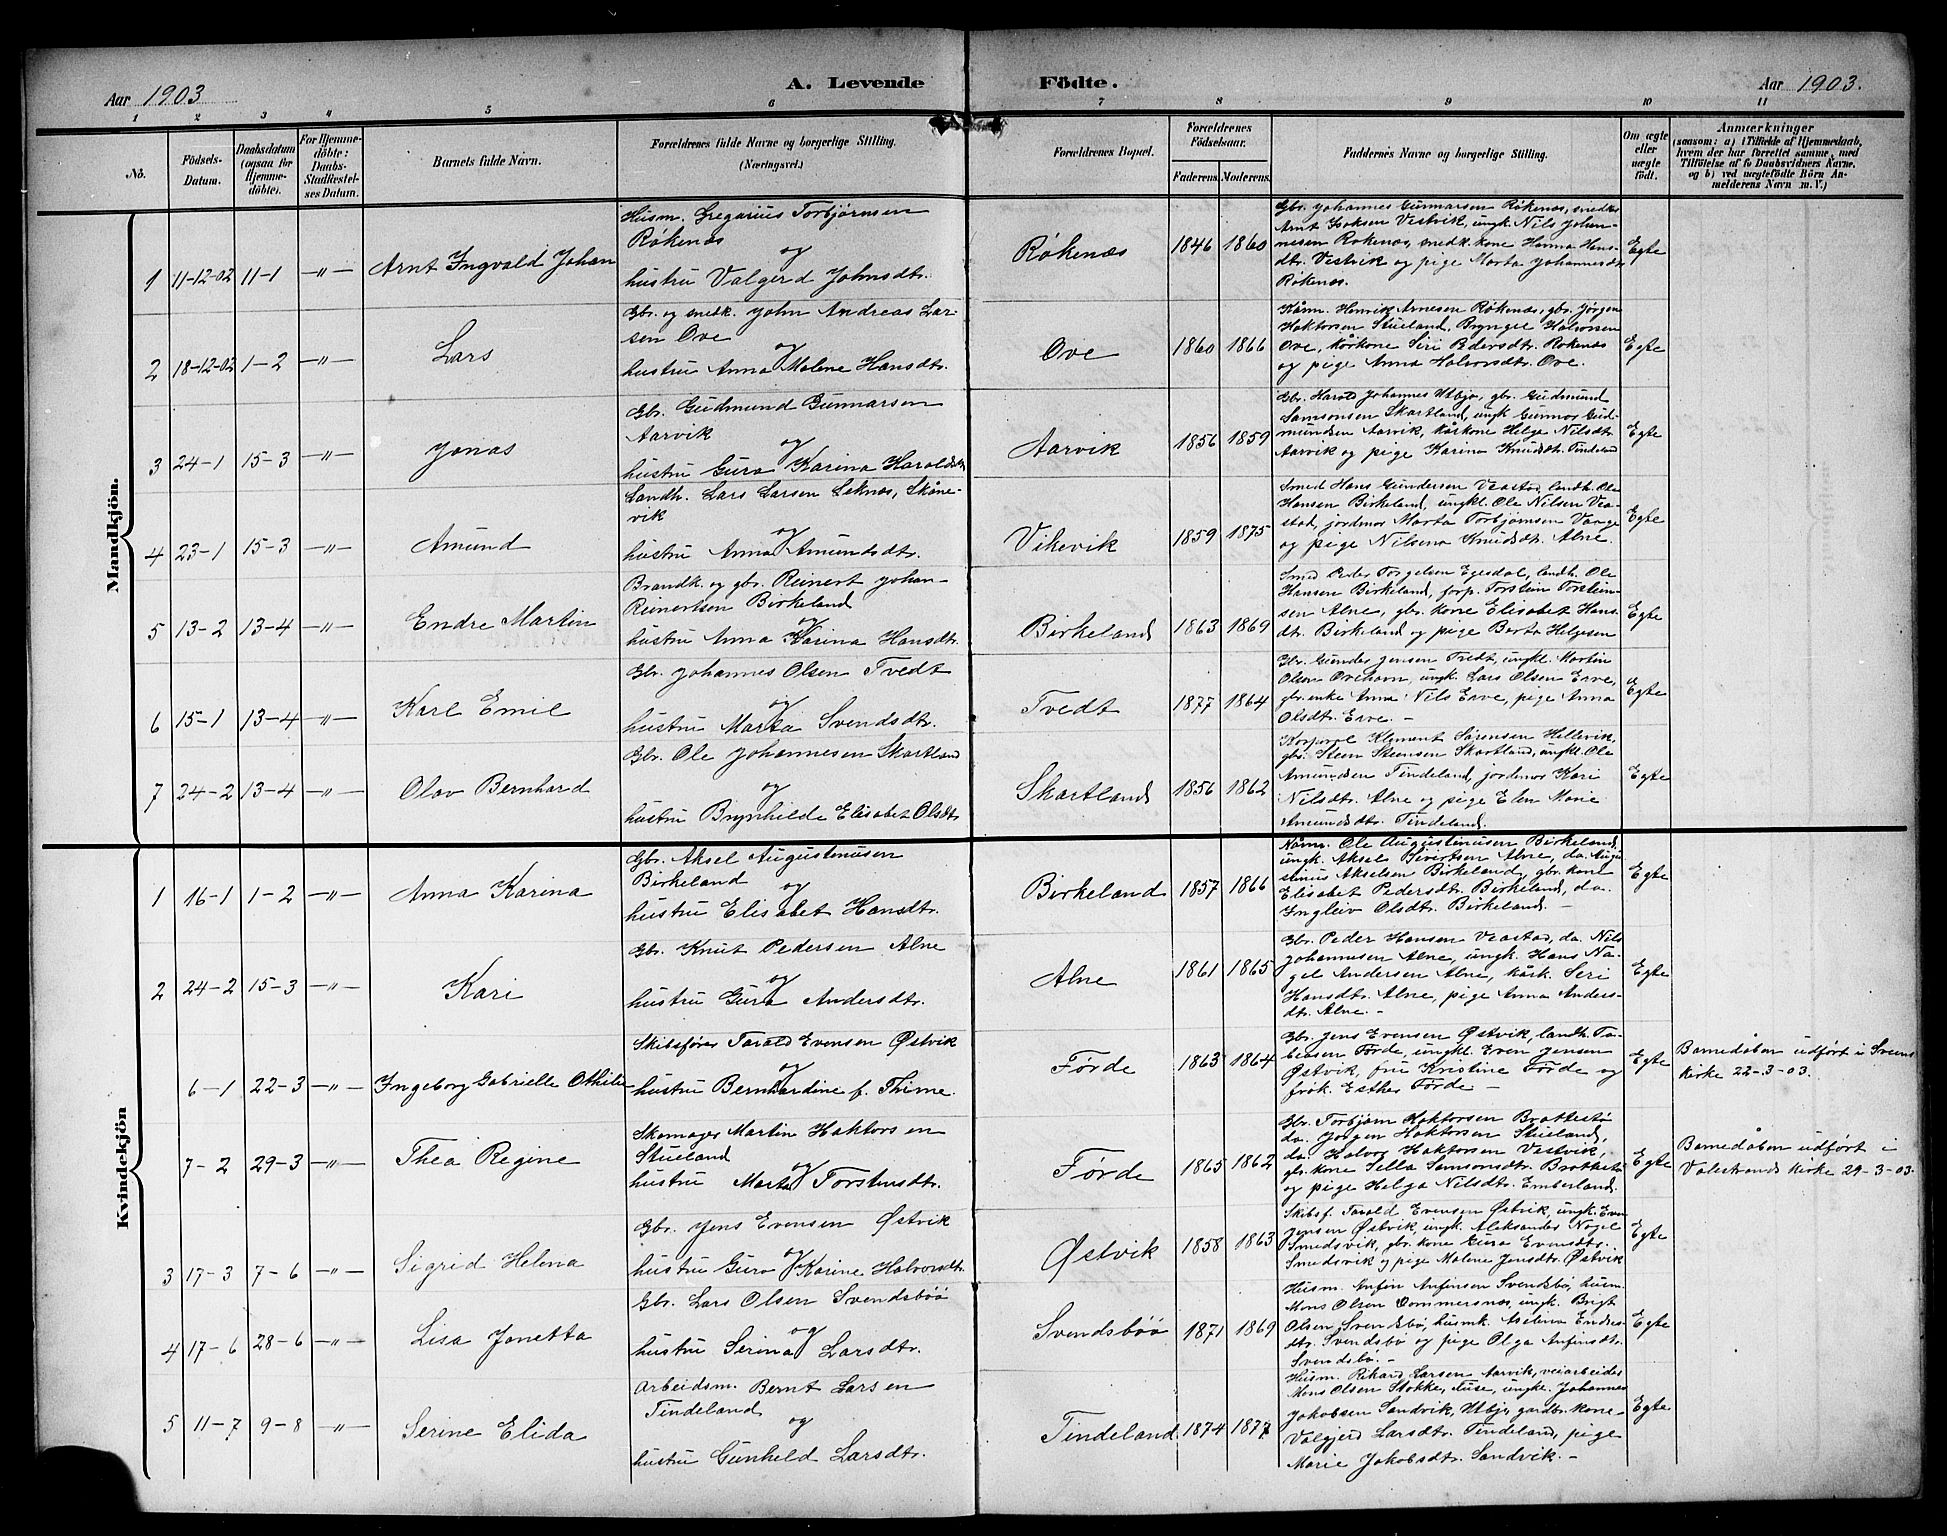 Aar 1903
A. Levende Födte.
Aar 1903.
1 2 3 4 5 6 7 8 9 10 11
No.
Födsels-
Datum.
Daabsdatum
(ogsaa for
Hjemme-
döbte).
For Hjemme-
döbte:
Daabs-
Stadfæstel-
ses Datum.
Barnets fulde Navn.
Forældrenes fulde Navne og borgerlige Stilling.
(Næringsvei.)
Forældrenes Bopæl.
Forældrenes
Födselsaar.
Faderens. Moderens.
Faddernes Navne og borgerlige Stilling.
Om ægte
eller
uægte
født.
Anmærkninger
(saasom: a) i Tilfælde af Hjemmedaab,
hvem der har forrettet samme, med
Tilföielse af to Daabsvidners Navne,
og b) ved uægtefödte Börn An-
melderens Navn m. V.)
Mandkjön.
1 11-12-02 11-1 -"- Arnt Ingvald Johan
Husm. Gregarius Torbjørnsen
Røkenæs
og
hustru Valgerd Johnsdtr.
Røkenæs 1846 1860
Gbr. Johannes Gunnarsen Røkenæs, snedker
Arnt Hoksen Vestvik, ungk Nils Johan-
nesen Rokenæs, snedk. kone Hanna Hans-
dtr. Vestvik og pige Marta Johannesdtr
Røkenæs.
Egte
2 18-12-02 1-2 -"- Lars
Gbr. og snedk. John Andreas Lar-
sen Ove
og
hustru Anna Malene Hansdtr.
Ove 1860 1866
Kårm. Henrik Arnesen Røkenæs, gbr. Jørgen
Haktorsen Stueland, Bryngel Halvorsen
Ove, kårkone Siri Pedersdtr. Rokenæs
og pige Anna Halvorsdtr. Ove.
Egte
3 24-1 15-3 -"- Jonas
Gbr. Gudmund Gunnarsen
Aarvik
og
hustru Guro Karina Haraldsdtr
Aarvik 1856 1859
Gbr. Harald Johannes Utbjo, gbr. Gudmund
Samsonsen Skartland, ungk Gunnar Gud-
mundsen Aarvik, kårkone Helge Nilsdtr.
Aarvik og pige Karina Knudsdtr. Tindeland
Egte
4 23-1 15-3 -"- Amund
Landh. Lars Larsen Leknæs, Skåne-
vik
og
hustru Anna Amundsdtr.
Vikevik 1859 1875
Smed Hans Gundersen Veastad, landh. Ole
Hansen Birkeland, ungkl. Ole Nilsen Vea-
stad, jordmor Marta Torbjørnsen Vaage
og pige Nilsena Knudsdtr. Alne.
Egte
5 13-2 13-4 -"- Endre Martin
Brandk. og gbr. Reinert Johan-
Reinertsen Birkeland
og
hustru Anna Karina Hansdtr.
Birkeland 1863 1869
Smed Peder Torgelsen Egesdal, landh. Ole
Hansen Birkeland, forp. Torstein Torstein-
sen Alne, gbr. kone Elisabet Hans-
dtr. Birkeland og pige Berta Helgesen
Egte
6 15-1 13-4 -"- Karl Emil
Gbr. Johannes Olsen Tvedt
og
hustru Marta Svendsdtr.
Tvedt 1877 1864
Gbr. Gunder Jensen Tvedt, ungk. Martin
Olsen Ovehavn, ungk. Lars Olsen Erve,
gbr. enke Anna Nils Erve, pige Anna
Olsdtr. Erve. -
Egte
7 24-2 13-4 -"- Olav Bernhard
Gbr. Ole Johannesen Skartland
og
hustru Brynhilde Elisabet Olsdtr
Skartland 1856 1862
Korporal Klement Sørensen Hellevik,
gbr. Steen Steensen Skartland, ungkl. Ole
Amundsen Tindeland, jordmor Kari
Nilsdtr. Alne og pige Elen Marie
Amundsdtr. Tindeland.
Egte
Kvindekjön
1 16-1 1-2 -"- Anna Karina
Gbr. Aksel Augustinusen
Birkeland
og
hustru Elisabet Hansdtr.
Birkeland 1857 1866
Kårm. Ole Augustinusen Birkeland,
ungk. Aksel Sivertsen Alne, do. Augu
stinus Akselsen Birkeland, gbr. kone
Elisabet Pedersdtr. Birkeland, do.
Ingleiv Olsdtr. Birkeland. -
Egte
2 24-2 15-3 -"- Kari
Gbr. Knut Pedersen Alne
og
hustru Guro Andersdtr.
Alne 1861 1865
Gbr. Peder Hansen Veastad, do. Nils
Johannesen Alne, ungk. Hans Na-
gel Andersen Alne, kårk. Seri
Hansdtr. Alne, pige Anna Anders-
dtr. Alne. -
Egte
6-1 22-3 -"- Ingeborg Gabrielle Othilie
Skibsfører Tarald Evensen Østvik
og
hustru Bernhardine f. Thime.
Førde 1863 1864
Gbr. Jens Evensen Østvik, landh. To-
biasen Førde, ungkl. Even Jensen
Østvik, fru Kristine Førde og
frøk. Esther Førde -
Egte
Barnedåben udført i Sveens
kirke 22-3-03.
7-2 29-3 -"- Thea Regine
Skomager Martin Haktorsen
Stueland
og
hustru Marta Torstensdtr.
Førde 1865 1862
Gbr. Torbjørn Haktorsen Brattestø
do. Jørgen Haktorsen Stueland,
do. Halvor Haktorsen Vestvik,
gbr. kone Sella Samsonsdtr. Brattestø
og pige Helga Nilsdtr. Emberland.
Egte
Barnedåben udført i
Valestrands kirke 29-3-03.
3 17-3 7-6 -"- Sigrid Helena
Gbr. Jens Evensen Østvik
og
hustru Guro Karine Halvorsdtr.
Østvik 1858 1863
Skibsf. Tarald Evensen Østvik, ungk. Even
Jensen Østvik, ungk. Aleksander Nagel
Smedsvik, gbr. kone Guro Evensdtr.
Smedsvik og pige Malene Jensdtr. Østvik
Egte
4 17-6 28-6 -"- Lisa Jonetta
Gbr. Lars Olsen Svendsböö
og
hustru Serina Larsdtr.
Svendsböö 1871 1869
Husm. Anfin Anfinsen Svendsbø, husm.
Mons Olsen Dommersnæs, ungk. Brigt
Olsen Svendsbø, husmk. Aselena Endres-
dtr. Svendsbø og pige Olga Anfinsdtr.
Svendsbø. -
Egte
5 11-7 9-8 -"- Serine Elida
Arbeidsm. Bernt Larsen
Tindeland
og
hustru Gunheld Larsdtr.
Tindeland 1874 1877
Husm. Rikard Larsen Aarvik, veiarbeider
Mons Olsen Stokke, Tuse, ungk. Johannes
Jakobsen Sandvik, Utbjo, gardbr. kone
Valgjerd Larsdtr. Tindeland, pige
Marie Jakobsdtr. Sandvik. -
Egte